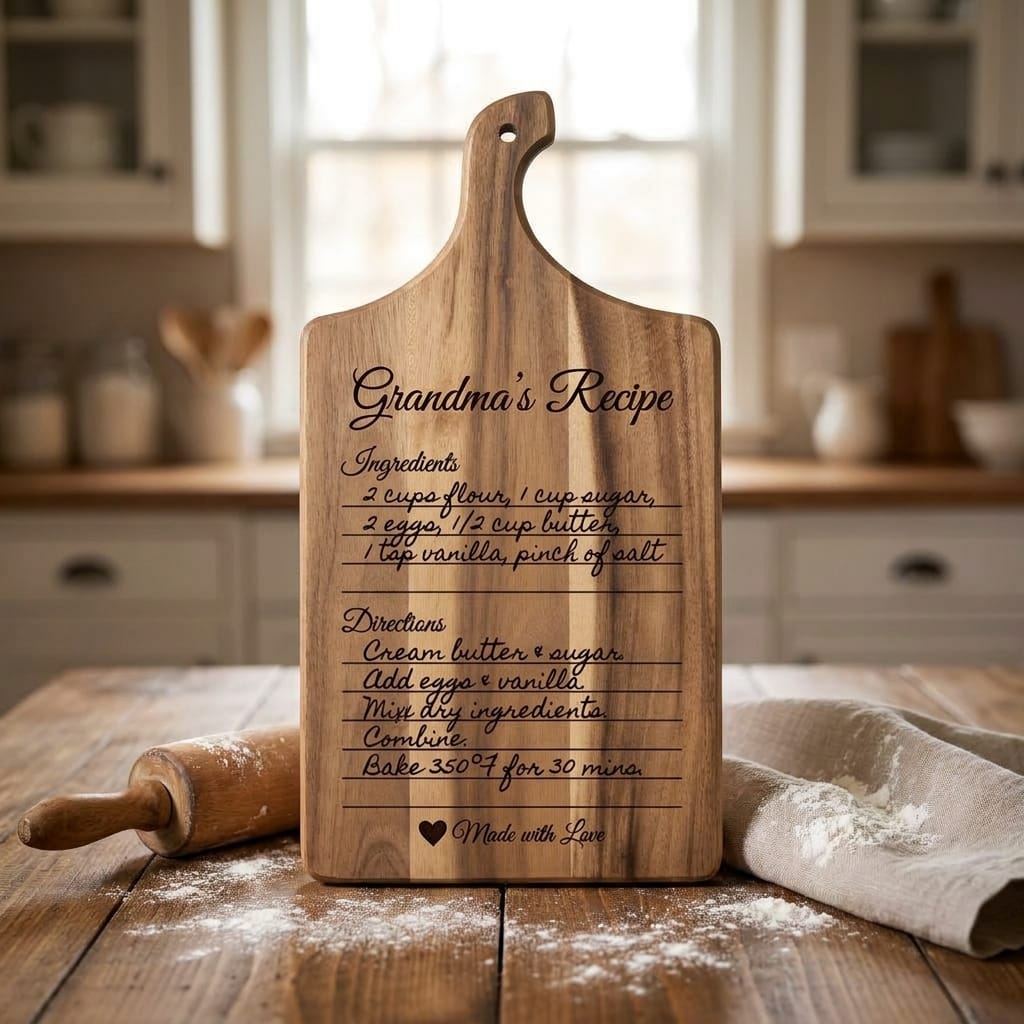 Grandma's Recipe
Ingredients
2 cups flour, 1 cup sugar,
2 eggs, 1/2 cup butter,
1 tsp vanilla, pinch of salt
Directions
Cream butter & sugar.
Add eggs & vanilla.
Mix dry ingredients.
Combine.
Bake 350°F for 30 mins.
Made with Love